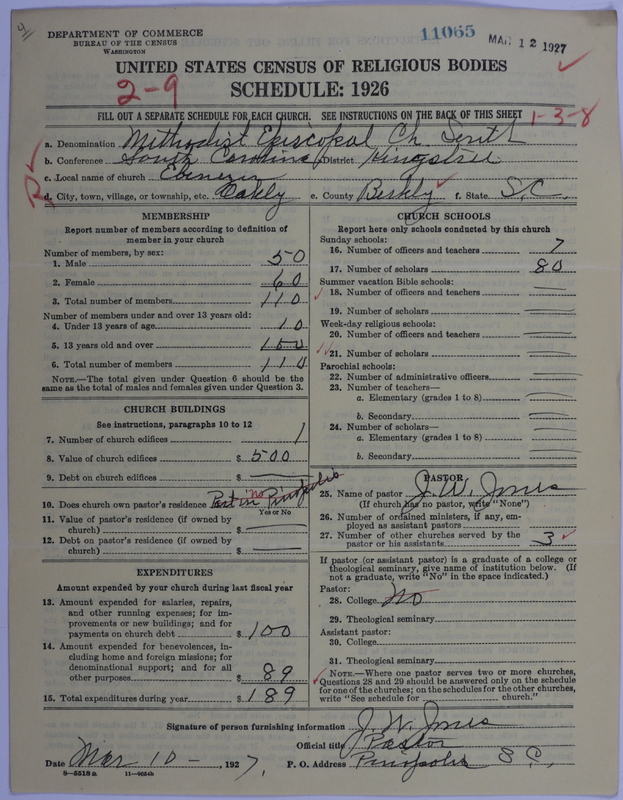 4
DEPARTMENT OF COMMERCE
BUREAU OF THE CENSUS
WASHINGTON
11065
MAR 12 1927
UNITED STATES CENSUS OF RELIGIOUS BODIES
2-9
SCHEDULE: 1926
FILL OUT A SEPARATE SCHEDULE FOR EACH CHURCH. SEE INSTRUCTIONS ON THE BACK OF THIS SHEET
1-3-8
a. Denomination Methodist Episcopal Ch. South
b. Conference South Carolina District Kingstree
c. Local name of church Ebenezer
d. City, town, village, or township, etc. Oakly e. County Berkly f. State S.C.
MEMBERSHIP
Report number of members according to definition of
member in your church
Number of members, by sex:
1. Male 50
2. Female 60
3. Total number of members 110
Number of members under and over 13 years old:
4. Under 13 years of age 10
5. 13 years old and over 100
6. Total number of members 110
NOTE.—The total given under Question 6 should be the
same as the total of males and females given under Question 3.
CHURCH BUILDINGS
See instructions, paragraphs 10 to 12
7. Number of church edifices 1
8. Value of church edifices $ 500
9. Debt on church edifices $
10. Does church own pastor's residence Part in Pinopolis no
Yes or No
11. Value of pastor's residence (if owned by
church) $
12. Debt on pastor's residence (if owned by
church) $
EXPENDITURES
Amount expended by your church during last fiscal year
13. Amount expended for salaries, repairs,
and other running expenses; for im-
provements or new buildings; and for
payments on church debt $ 100
14. Amount expended for benevolences, in-
cluding home and foreign missions; for
denominational support; and for all
other purposes $ 89
15. Total expenditures during year $ 189
CHURCH SCHOOLS
Report here only schools conducted by this church
Sunday schools:
16. Number of officers and teachers 7
17. Number of scholars 80
Summer vacation Bible schools:
18. Number of officers and teachers
19. Number of scholars
Week-day religious schools:
20. Number of officers and teachers
21. Number of scholars
Parochial schools:
22. Number of administrative officers
23. Number of teachers—
a. Elementary (grades 1 to 8)
b. Secondary
24. Number of scholars—
a. Elementary (grades 1 to 8)
b. Secondary
PASTOR
25. Name of pastor J. W. Jones
(If church has no pastor, write "None")
26. Number of ordained ministers, if any, em-
ployed as assistant pastors
27. Number of other churches served by the
pastor or his assistants 3
If pastor (or assistant pastor) is a graduate of a college or
theological seminary, give name of institution below. (If
not a graduate, write "No" in the space indicated.)
Pastor:
28. College No
29. Theological seminary
Assistant pastor:
30. College
31. Theological seminary
NOTE.—Where one pastor serves two or more churches,
Questions 28 and 29 should be answered only on the schedule
for one of the churches; on the schedules for the other churches,
write "See schedule for church."
Signature of person furnishing information J. W. Jones
Official title Pastor
Date Mar 10 - , 1927. P. O. Address Pinopolis S C,
8—5518a 11—9654b